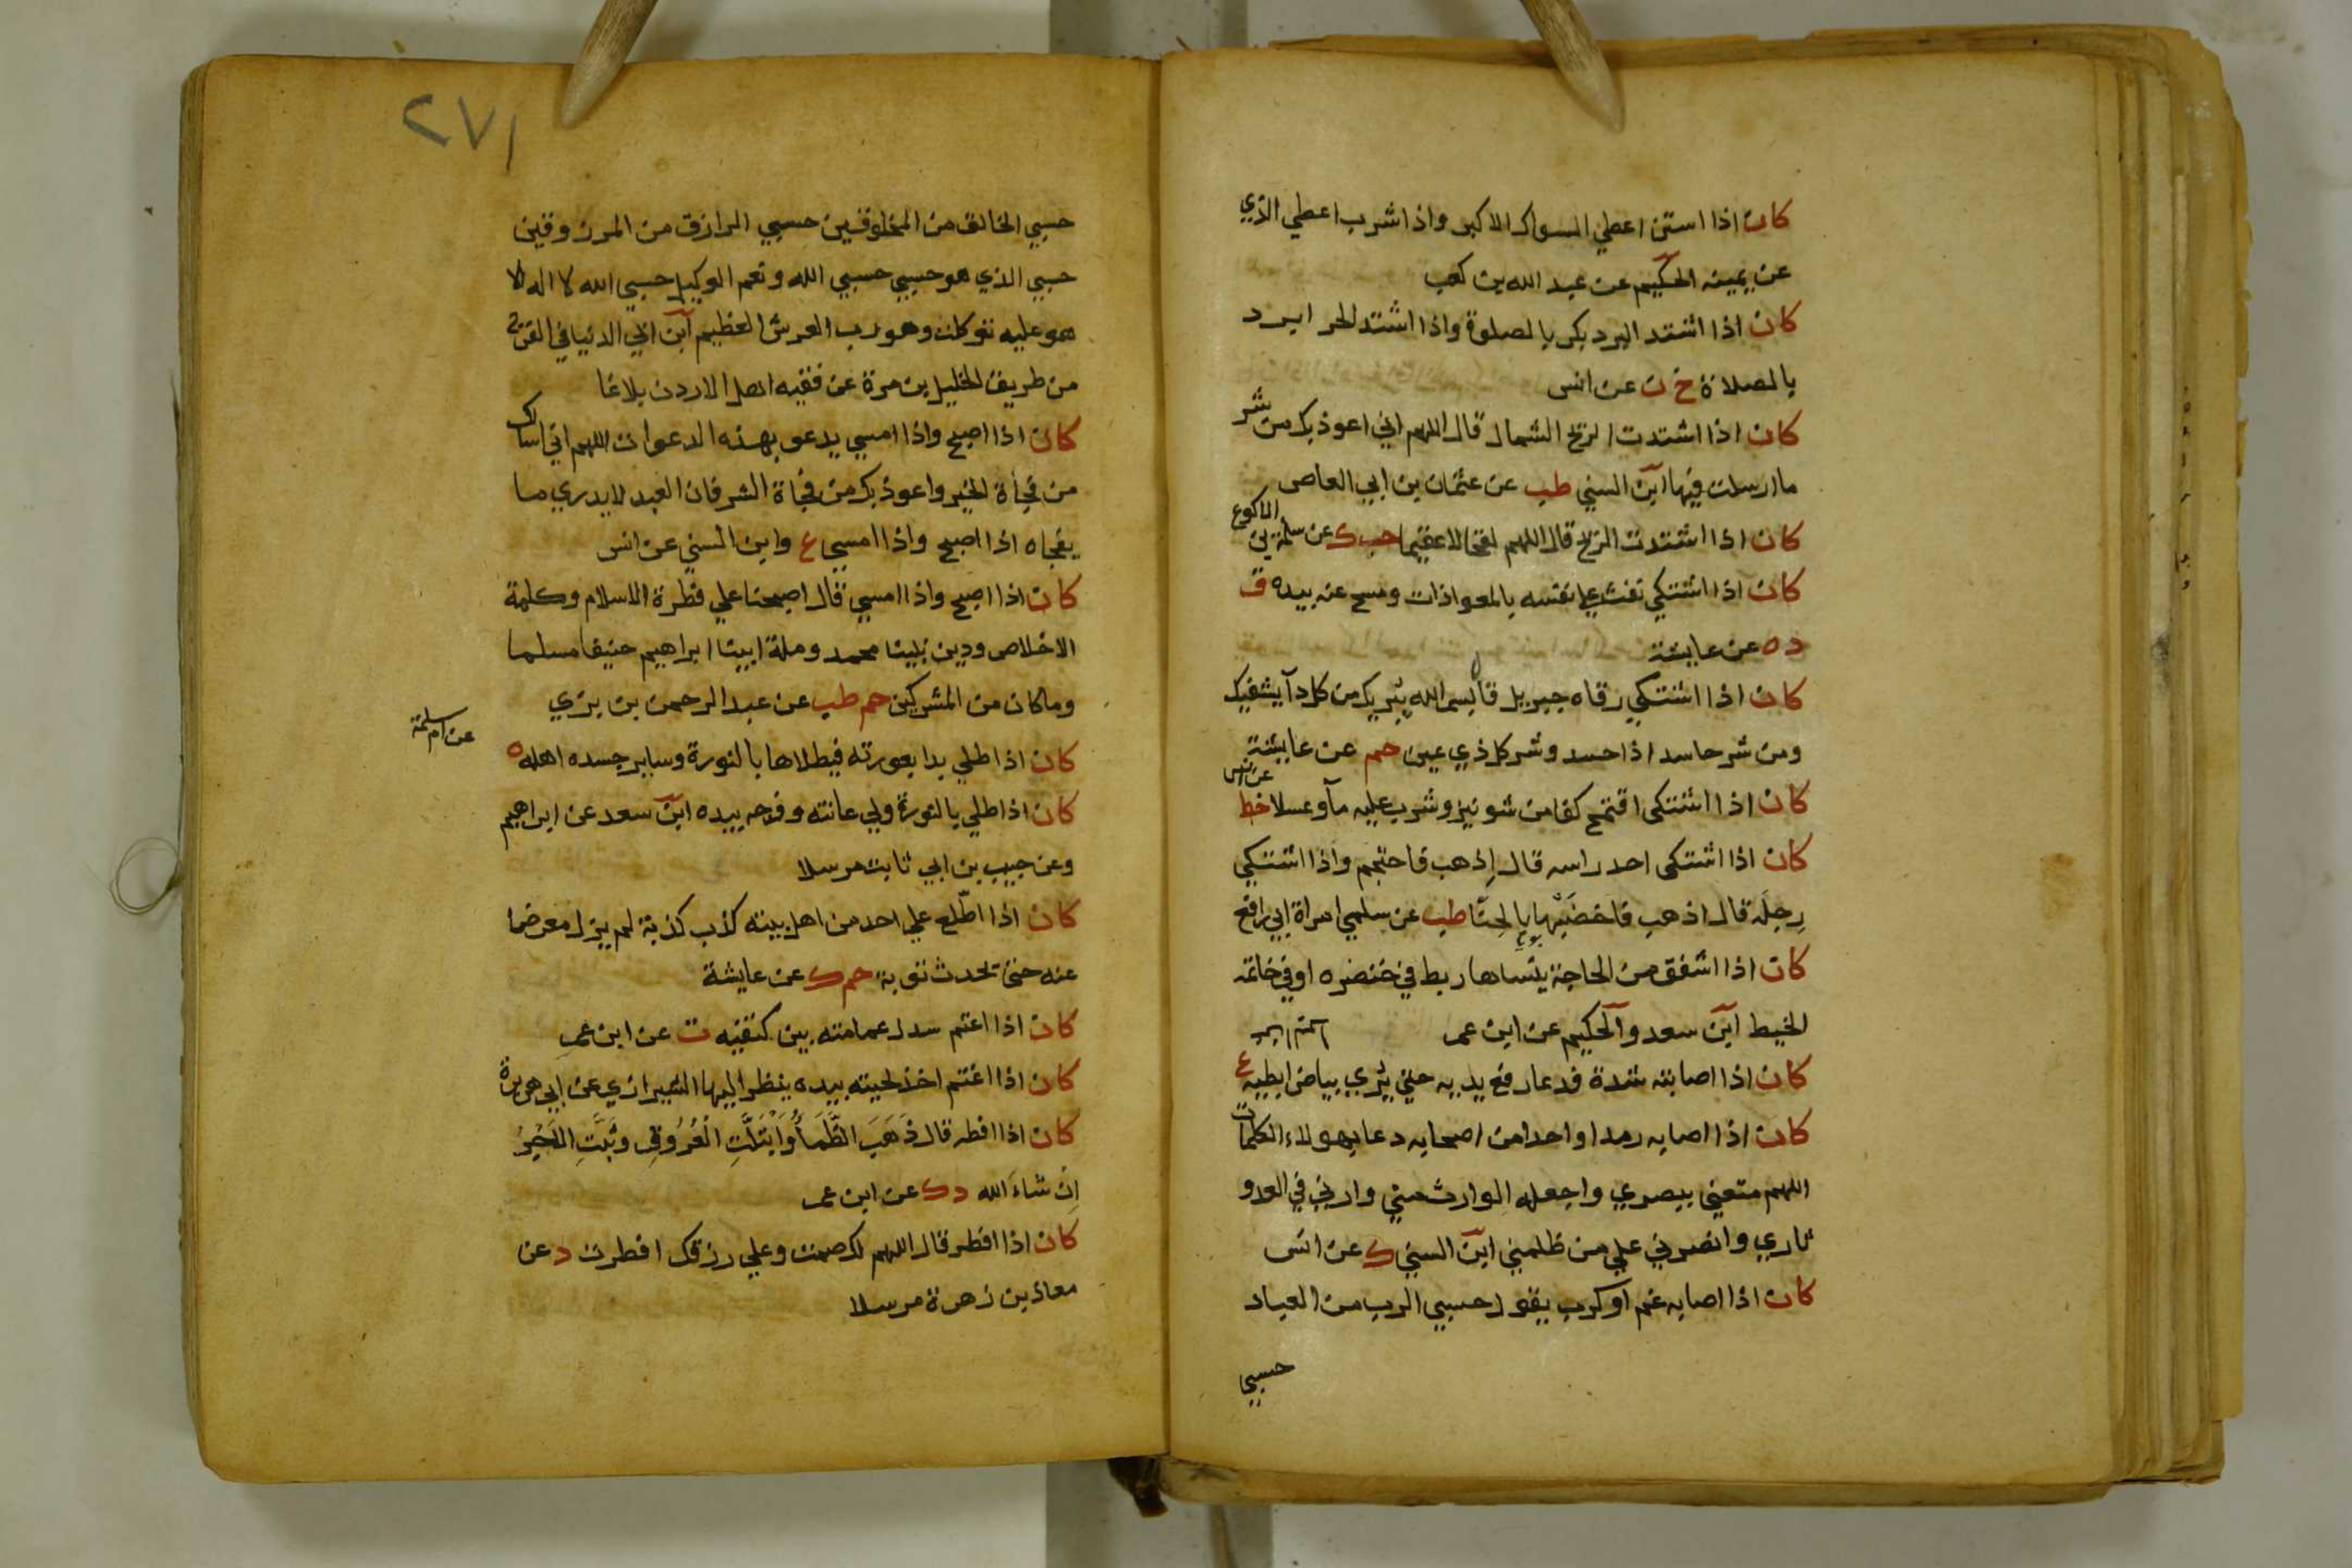 كان اذا استن اعطي السواك الاكبر واذا شرب اعطي الذي
عن يمينه الحكيم عن عبد الله بن كعب
كان اذا اشتد البرد بكر بالصلوة واذا اشتد الحر ابرد
بالصلاة خ ن عن انس
كان اذا اشتدت الريح الشمال قال اللهم اني اعوذ بك من شر
ما ارسلت فيها ابن السني طب عن عثمان بن ابي العاص
كان اذا اشتدت الريح قال اللهم لقحا لا عقيما حب ك عن سلمة بن الاكوع
كان اذا اشتكي نفث علي نفسه بالمعوذات ومسح عنه بيده ق
د ه عن عايشة
كان اذا اشتكي رقاه جبريل قال بسم الله يبريك من كل دآ يشفيك
ومن شر حاسد اذا حسد وشر كل ذي عين حم عن عايشة
كان اذا اشتكى اقتمح كفا من شونيز وشرب عليه مآ وعسلا خط عن انس
كان اذا اشتكى احد راسه قال إذهب فاحتجم واذا اشتكي
رِجلَه قال اذهب فاخضبها بالحنّا طب عن سلمي امراة ابي رافع
كان اذا اشفق من الحاجة ينساها ربط في خنصره او في خاتمه
الخيط ابن سعد والحكيم عن ابن عمر
كان اذا اصابته شدة فدعا رفع يديه حتي يُري بياض ابطيه ع
كان اذا اصابه رمد او احدا من اصحابه دعا بهولاء الكلمات
اللهم متعني ببصري واجعله الوارث مني وارني في العدو
ثاري وانصرني علي من ظلمني ابن السني ك عن انس
كان اذا اصابه غم او كرب يقول حسبي الرب من العباد
حسبي
٢٧١
حسبي الخالق من المخلوقين حسبي الرازق من المرزوقين
حسبي الذي هو حسبي حسبي الله ونعم الوكيل حسبي الله لا اله الا
هو عليه توكلت وهو رب العرش العظيم ابن ابي الدنيا في الفرج
من طريق الخليل بن مرة عن فقيه اهل الاردن بلاغا
كان اذا اصبح واذا امسي يدعو بهذه الدعوات اللهم اني اسالك
من فجأة الخير واعوذ بك من فجاة الشر فان العبد لا يدري ما
يفجاه اذا اصبح واذا امسي ع وابن السني عن انس
كان اذا اصبح واذا امسي قال اصبحنا علي فطرة الاسلام وكلمة
الاخلاص ودين نبينا محمد وملة ابينا ابراهيم حنيفا مسلما
وما كان من المشركين حم طب عن عبد الرحمن بن بزي
كان اذا اطلي بدا بعورته فيطلاها بالنورة وساير جسده اهله ه
عن ام سلمة
كان اذا اطلي بالنورة ولي عانته وفرجه بيده ابن سعد عن ابراهيم
وعن حبيب بن ابي ثابت مرسلا
كان اذا اطّلع علي احد من اهل بيته كذب كذبة لم يزل معرضا
عنه حتى تحدث توبة حم ك عن عايشة
كان اذا اعتم سدل عمامته بين كتفيه ت عن ابن عمر
كان اذا اغتم اخذ لحيته بيده ينظر اليها الشيرازي عن ابي هريرة
كان اذا افطر قال ذَهَبَ الظَّمَأُ وَابْتَلَّتِ الْعُرُوقُ وثَبَتَ الَاجْرُ
اِن شَاءَ الله د ك عن ابن عمر
كان اذا افطر قال اللهم لك صمت وعلي رزقك افطرت د عن
معاذ بن زهرة مرسلا